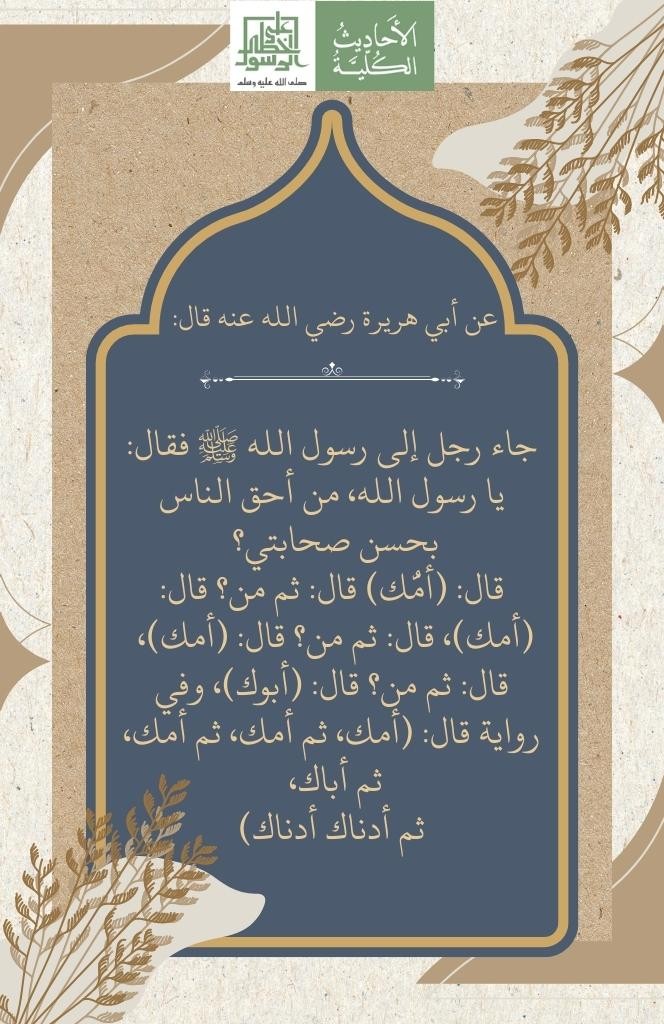 على خطى الرسول
صلى الله عليه وسلم
الأَحَادِيثُ
الكُلِّيَّةُ
عن أبي هريرة رضي الله عنه قال:
جاء رجل إلى رسول الله ﷺ فقال:
يا رسول الله، من أحق الناس
بحسن صحابتي؟
قال: (أمُّك) قال: ثم من؟ قال:
(أمك)، قال: ثم من؟ قال: (أمك)،
قال: ثم من؟ قال: (أبوك)، وفي
رواية قال: (أمك، ثم أمك، ثم أمك،
ثم أباك،
ثم أدناك أدناك)